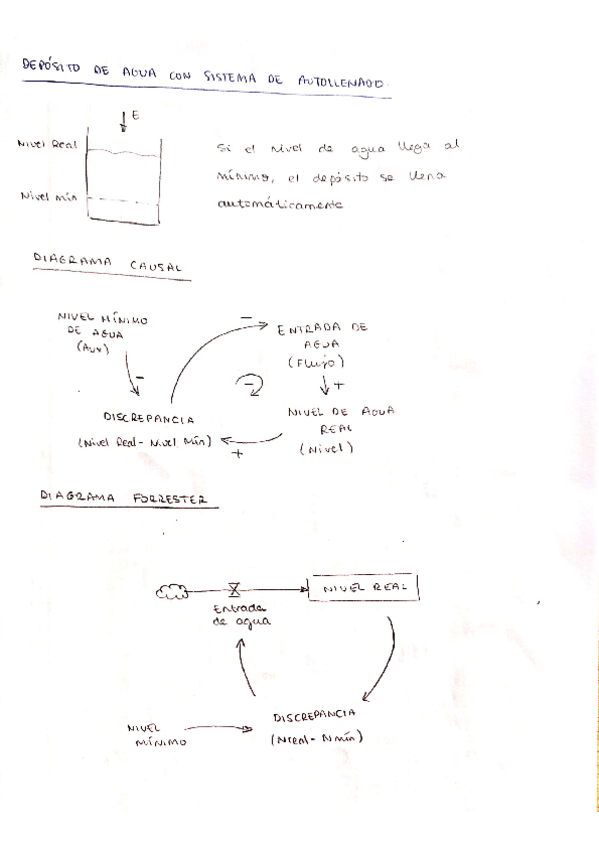 DEPÓSITO DE AGUA CON SISTEMA DE AUTOLLENADO.
E
Nivel Real
Nivel Mín
Si el nivel de agua llega al
mínimo, el depósito se llena
automáticamente
DIAGRAMA CAUSAL
NIVEL MÍNIMO
DE AGUA
(Aux)
-
ENTRADA DE
AGUA
(Flujo)
-
-
+
DISCREPANCIA
(Nivel Real - Nivel Mín)
+
NIVEL DE AGUA
REAL
(Nivel)
DIAGRAMA FORRESTER
NIVEL REAL
Entrada
de agua
DISCREPANCIA
(Nreal - Nmín)
NIVEL
MÍNIMO